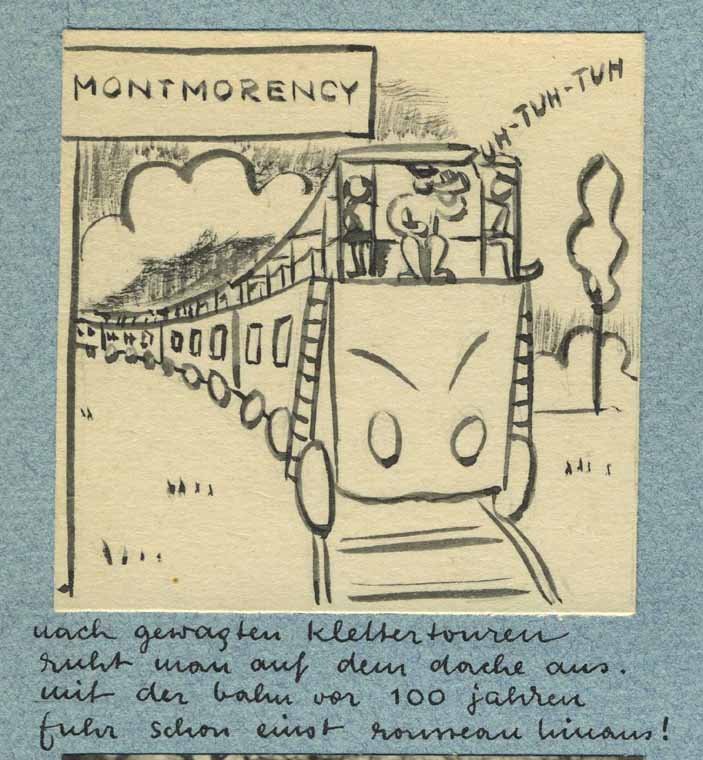 MONTMORENCY
UH-TUH-TUH
nach gewagten klettertouren
ruht man auf dem dache aus.
mit der bahn vor 100 jahren
fuhr schon einst rousseau hinaus!